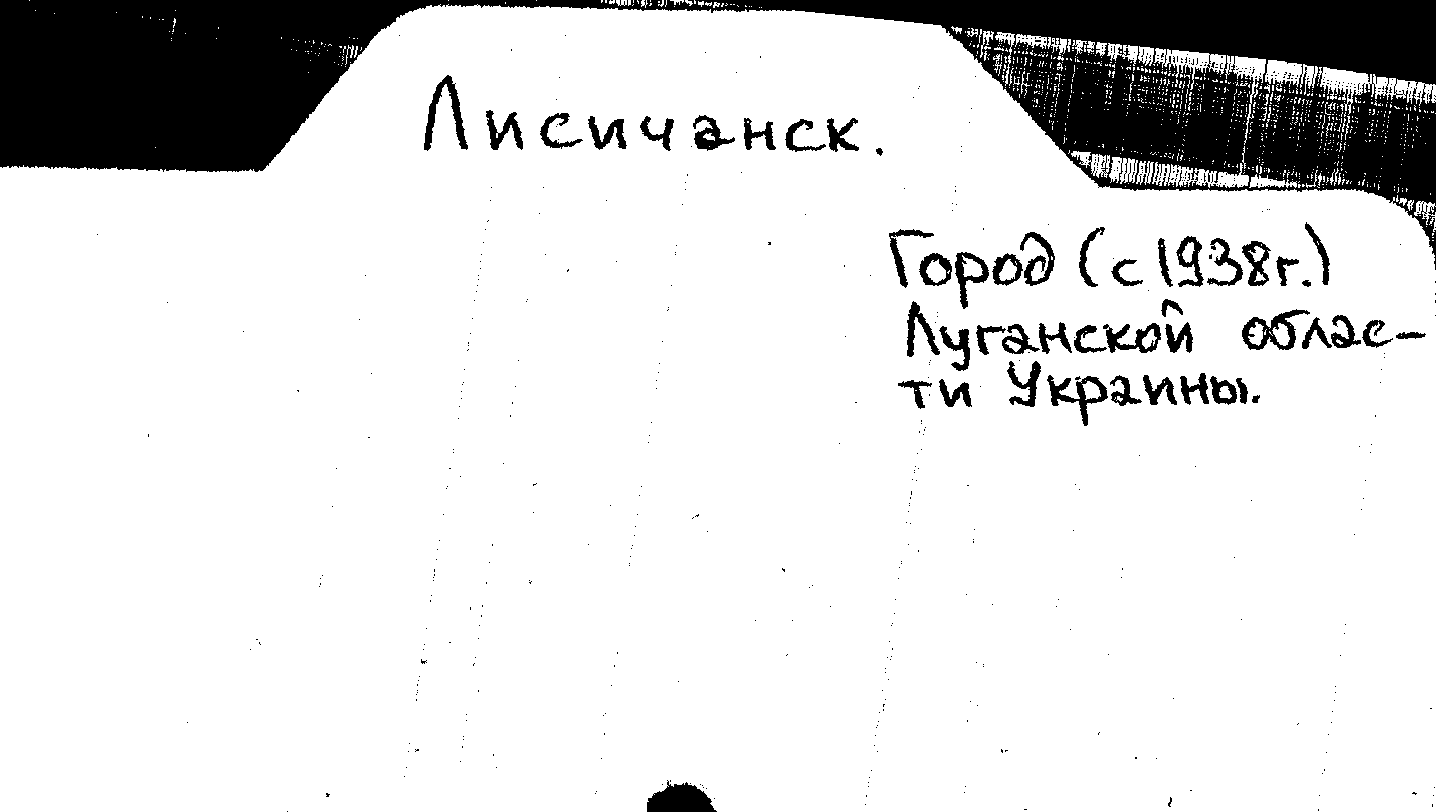 Лисичанск.
Город (с 1938г.)
Луганской облас-
ти Украины.